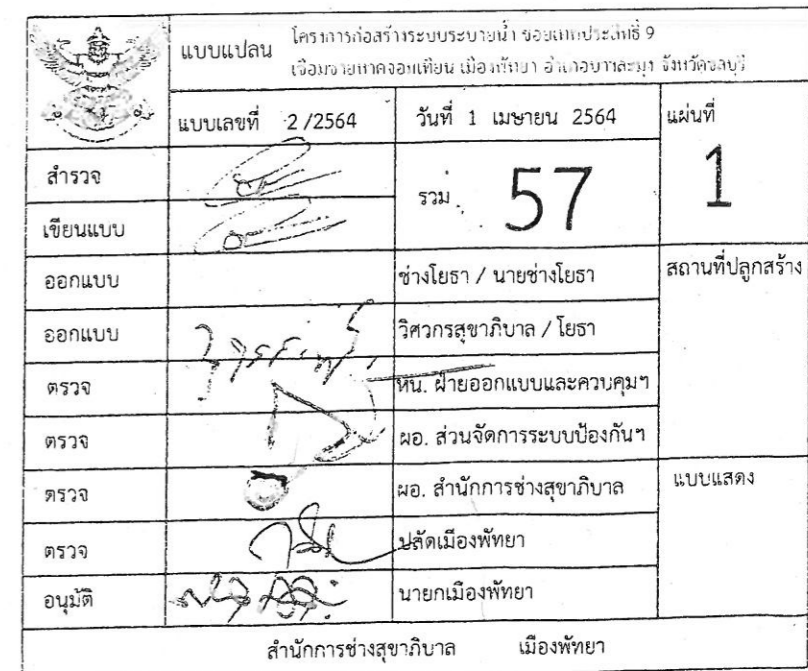 แบบแปลน
โครงการก่อสร้างระบบระบายน้ำ ซอยเทพประสิทธิ์ 9
เชื่อมชายหาดจอมเทียน เมืองพัทยา อำเภอบางละมุง จังหวัดชลบุรี
แบบเลขที่ 2/2564 วันที่ 1 เมษายน 2564 แผ่นที่
1
สำรวจ
รวม 57
เขียนแบบ
ออกแบบ ช่างโยธา / นายช่างโยธา สถานที่ปลูกสร้าง
ออกแบบ วิศวกรสุขาภิบาล / โยธา
ตรวจ หน. ฝ่ายออกแบบและควบคุมฯ
ตรวจ ผอ. ส่วนจัดการระบบป้องกันฯ
ตรวจ ผอ. สำนักการช่างสุขาภิบาล แบบแสดง
ตรวจ ปลัดเมืองพัทยา
อนุมัติ นายกเมืองพัทยา
สำนักการช่างสุขาภิบาล เมืองพัทยา